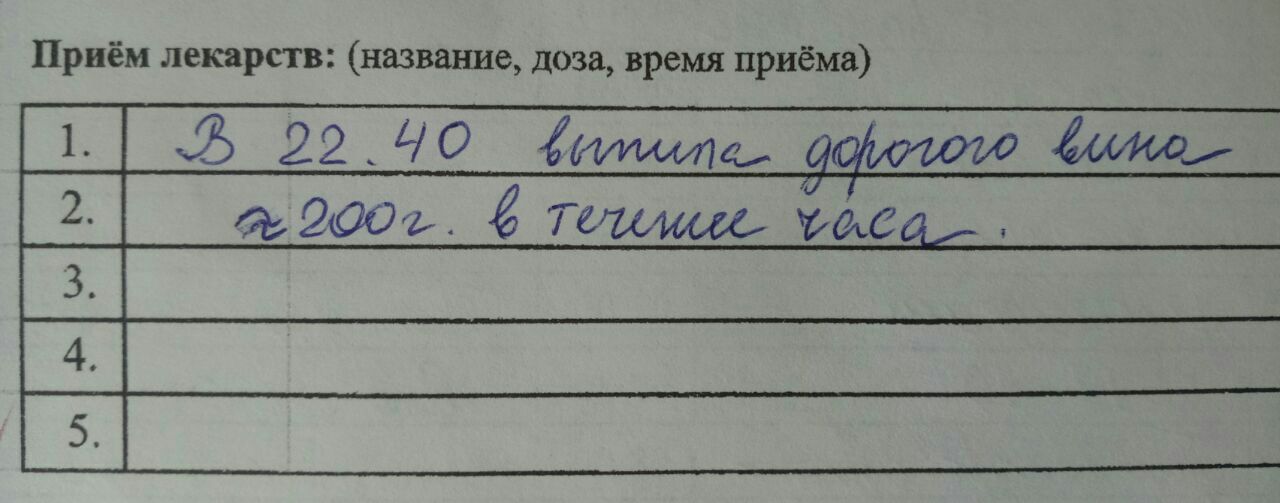 Приём лекарств: (название, доза, время приёма)
1. В 22.40 выпила дорогого вина
2. ≈200г. в течение часа.
3.
4.
5.